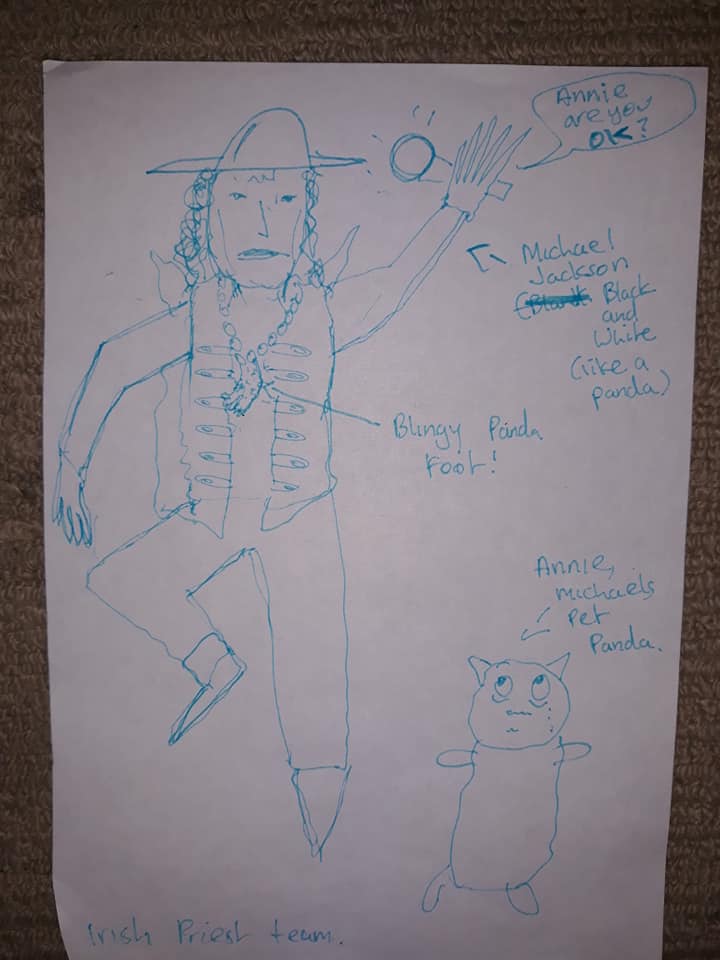 Annie
are you
OK?
Michael
Jackson
Black
and
White
(like a
panda)
Blingy Panda
Foot!
Annie,
Michaels
Pet
Panda.
Irish Priest team.